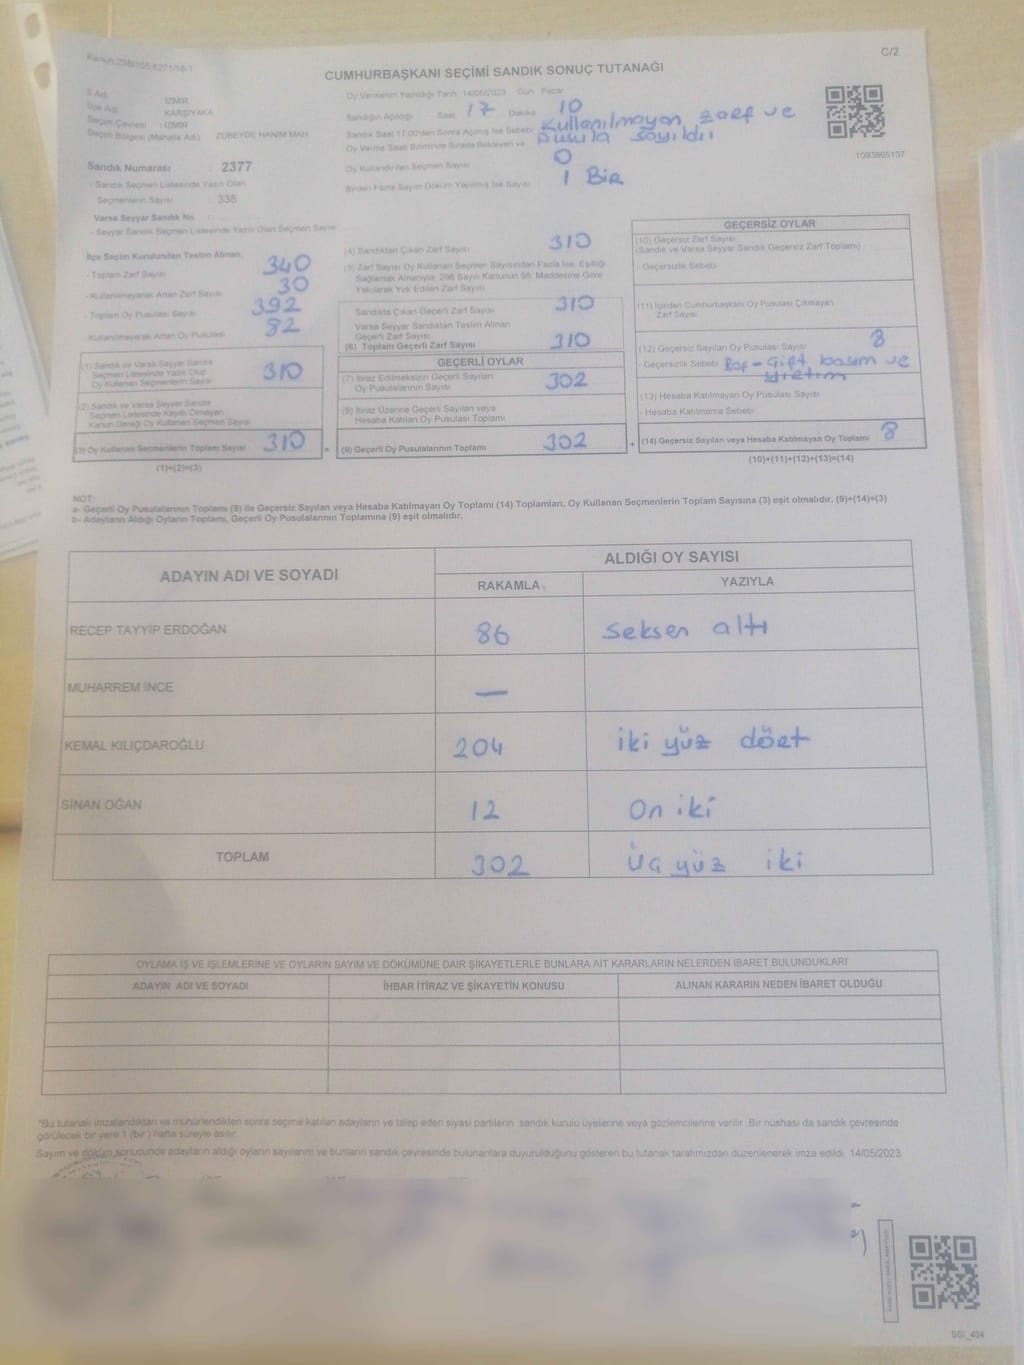 Kanun:298/105;6271/18-1
C/2
CUMHURBAŞKANI SEÇİMİ SANDIK SONUÇ TUTANAĞI
İl Adı : İZMİR
İlçe Adı : KARŞIYAKA
Seçim Çevresi : İZMİR
Seçim Bölgesi (Mahalle Adı) : ZÜBEYDE HANIM MAH
Sandık Numarası : 2377
- Sandık Seçmen Listesinde Yazılı Olan
Seçmenlerin Sayısı : 338
Oy Vermenin Yapıldığı Tarih :14/05/2023 Gün :Pazar
Sandığın Açıldığı Saat 17 Dakika 10
Sandık Saat 17:00'den Sonra Açılmış İse Sebebi Kullanılmayan zarf ve
pusula sayıldı
Oy Verme Saati Bitiminde Sırada Bekleyen ve
Oy Kullandırılan Seçmen Sayısı 0
Birden Fazla Sayım Döküm Yapılmış İse Sayısı 1 Bir
1093865137
Varsa Seyyar Sandık No
- Seyyar Sandık Seçmen Listesinde Yazılı Olan Seçmen Sayısı
İlçe Seçim Kurulundan Teslim Alınan,
- Toplam Zarf Sayısı 340
- Kullanılmayarak Artan Zarf Sayısı 30
- Toplam Oy Pusulası Sayısı 392
Kullanılmayarak Artan Oy Pusulası 82
(1) Sandık ve Varsa Seyyar Sandık
Seçmen Listesinde Yazılı Olup
Oy Kullanan Seçmenlerin Sayısı 310
(2) Sandık ve Varsa Seyyar Sandık
Seçmen Listesinde Kayıtlı Olmayan
Kanun Gereği Oy Kullanan Seçmen Sayısı
(3) Oy Kullanan Seçmenlerin Toplam Sayısı 310
(1)+(2)=(3)
(4) Sandıktan Çıkan Zarf Sayısı 310
(5) Zarf Sayısı Oy Kullanan Seçmen Sayısından Fazla İse, Eşitliği
Sağlamak Amacıyla, 298 Sayılı Kanunun 98. Maddesine Göre
Yakılarak Yok Edilen Zarf Sayısı
Sandıkta Çıkan Geçerli Zarf Sayısı 310
Varsa Seyyar Sandıktan Teslim Alınan
Geçerli Zarf Sayısı
(6) Toplam Geçerli Zarf Sayısı 310
GEÇERLİ OYLAR
(7) İtiraz Edilmeksizin Geçerli Sayılan
Oy Pusulalarının Sayısı 302
(8) İtiraz Üzerine Geçerli Sayılan veya
Hesaba Katılan Oy Pusulası Toplamı
= (9) Geçerli Oy Pusulalarının Toplamı 302 +
GEÇERSİZ OYLAR
(10) Geçersiz Zarf Sayısı
(Sandık ve Varsa Seyyar Sandık Geçersiz Zarf Toplamı)
- Geçersizlik Sebebi
(11) İçinden Cumhurbaşkanı Oy Pusulası Çıkmayan
Zarf Sayısı
(12) Geçersiz Sayılan Oy Pusulası Sayısı 8
- Geçersizlik Sebebi Boş - Çift basım ve
yırtım
(13) Hesaba Katılmayan Oy Pusulası Sayısı
- Hesaba Katılmama Sebebi
(14) Geçersiz Sayılan veya Hesaba Katılmayan Oy Toplamı 8
(10)+(11)+(12)+(13)=(14)
NOT:
a- Geçerli Oy Pusulalarının Toplamı (9) ile Geçersiz Sayılan veya Hesaba Katılmayan Oy Toplamı (14) Toplamları, Oy Kullanan Seçmenlerin Toplam Sayısına (3) eşit olmalıdır. (9)+(14)=(3)
b- Adayların Aldığı Oyların Toplamı, Geçerli Oy Pusulalarının Toplamına (9) eşit olmalıdır.
ADAYIN ADI VE SOYADI
ALDIĞI OY SAYISI
RAKAMLA YAZIYLA
RECEP TAYYİP ERDOĞAN 86 Seksen altı
MUHARREM İNCE —
KEMAL KILIÇDAROĞLU 204 iki yüz dört
SİNAN OĞAN 12 On iki
TOPLAM 302 Üç yüz iki
OYLAMA İŞ VE İŞLEMLERİNE VE OYLARIN SAYIM VE DÖKÜMÜNE DAİR ŞİKAYETLERLE BUNLARA AİT KARARLARIN NELERDEN İBARET BULUNDUKLARI
ADAYIN ADI VE SOYADI İHBAR İTİRAZ VE ŞİKAYETİN KONUSU ALINAN KARARIN NEDEN İBARET OLDUĞU
*Bu tutanak imzalandıktan ve mühürlendikten sonra seçime katılan adayların ve talep eden siyasi partilerin sandık kurulu üyelerine veya gözlemcilerine verilir. Bir nüshası da sandık çevresinde
görülecek bir yere 1 (bir ) hafta süreyle asılır.
Sayım ve döküm sonucunda adayların aldığı oyların sayılarını ve bunların sandık çevresinde bulunanlara duyurulduğunu gösteren bu tutanak tarafımızdan düzenlenerek imza edildi. 14/05/2023
SSI_404